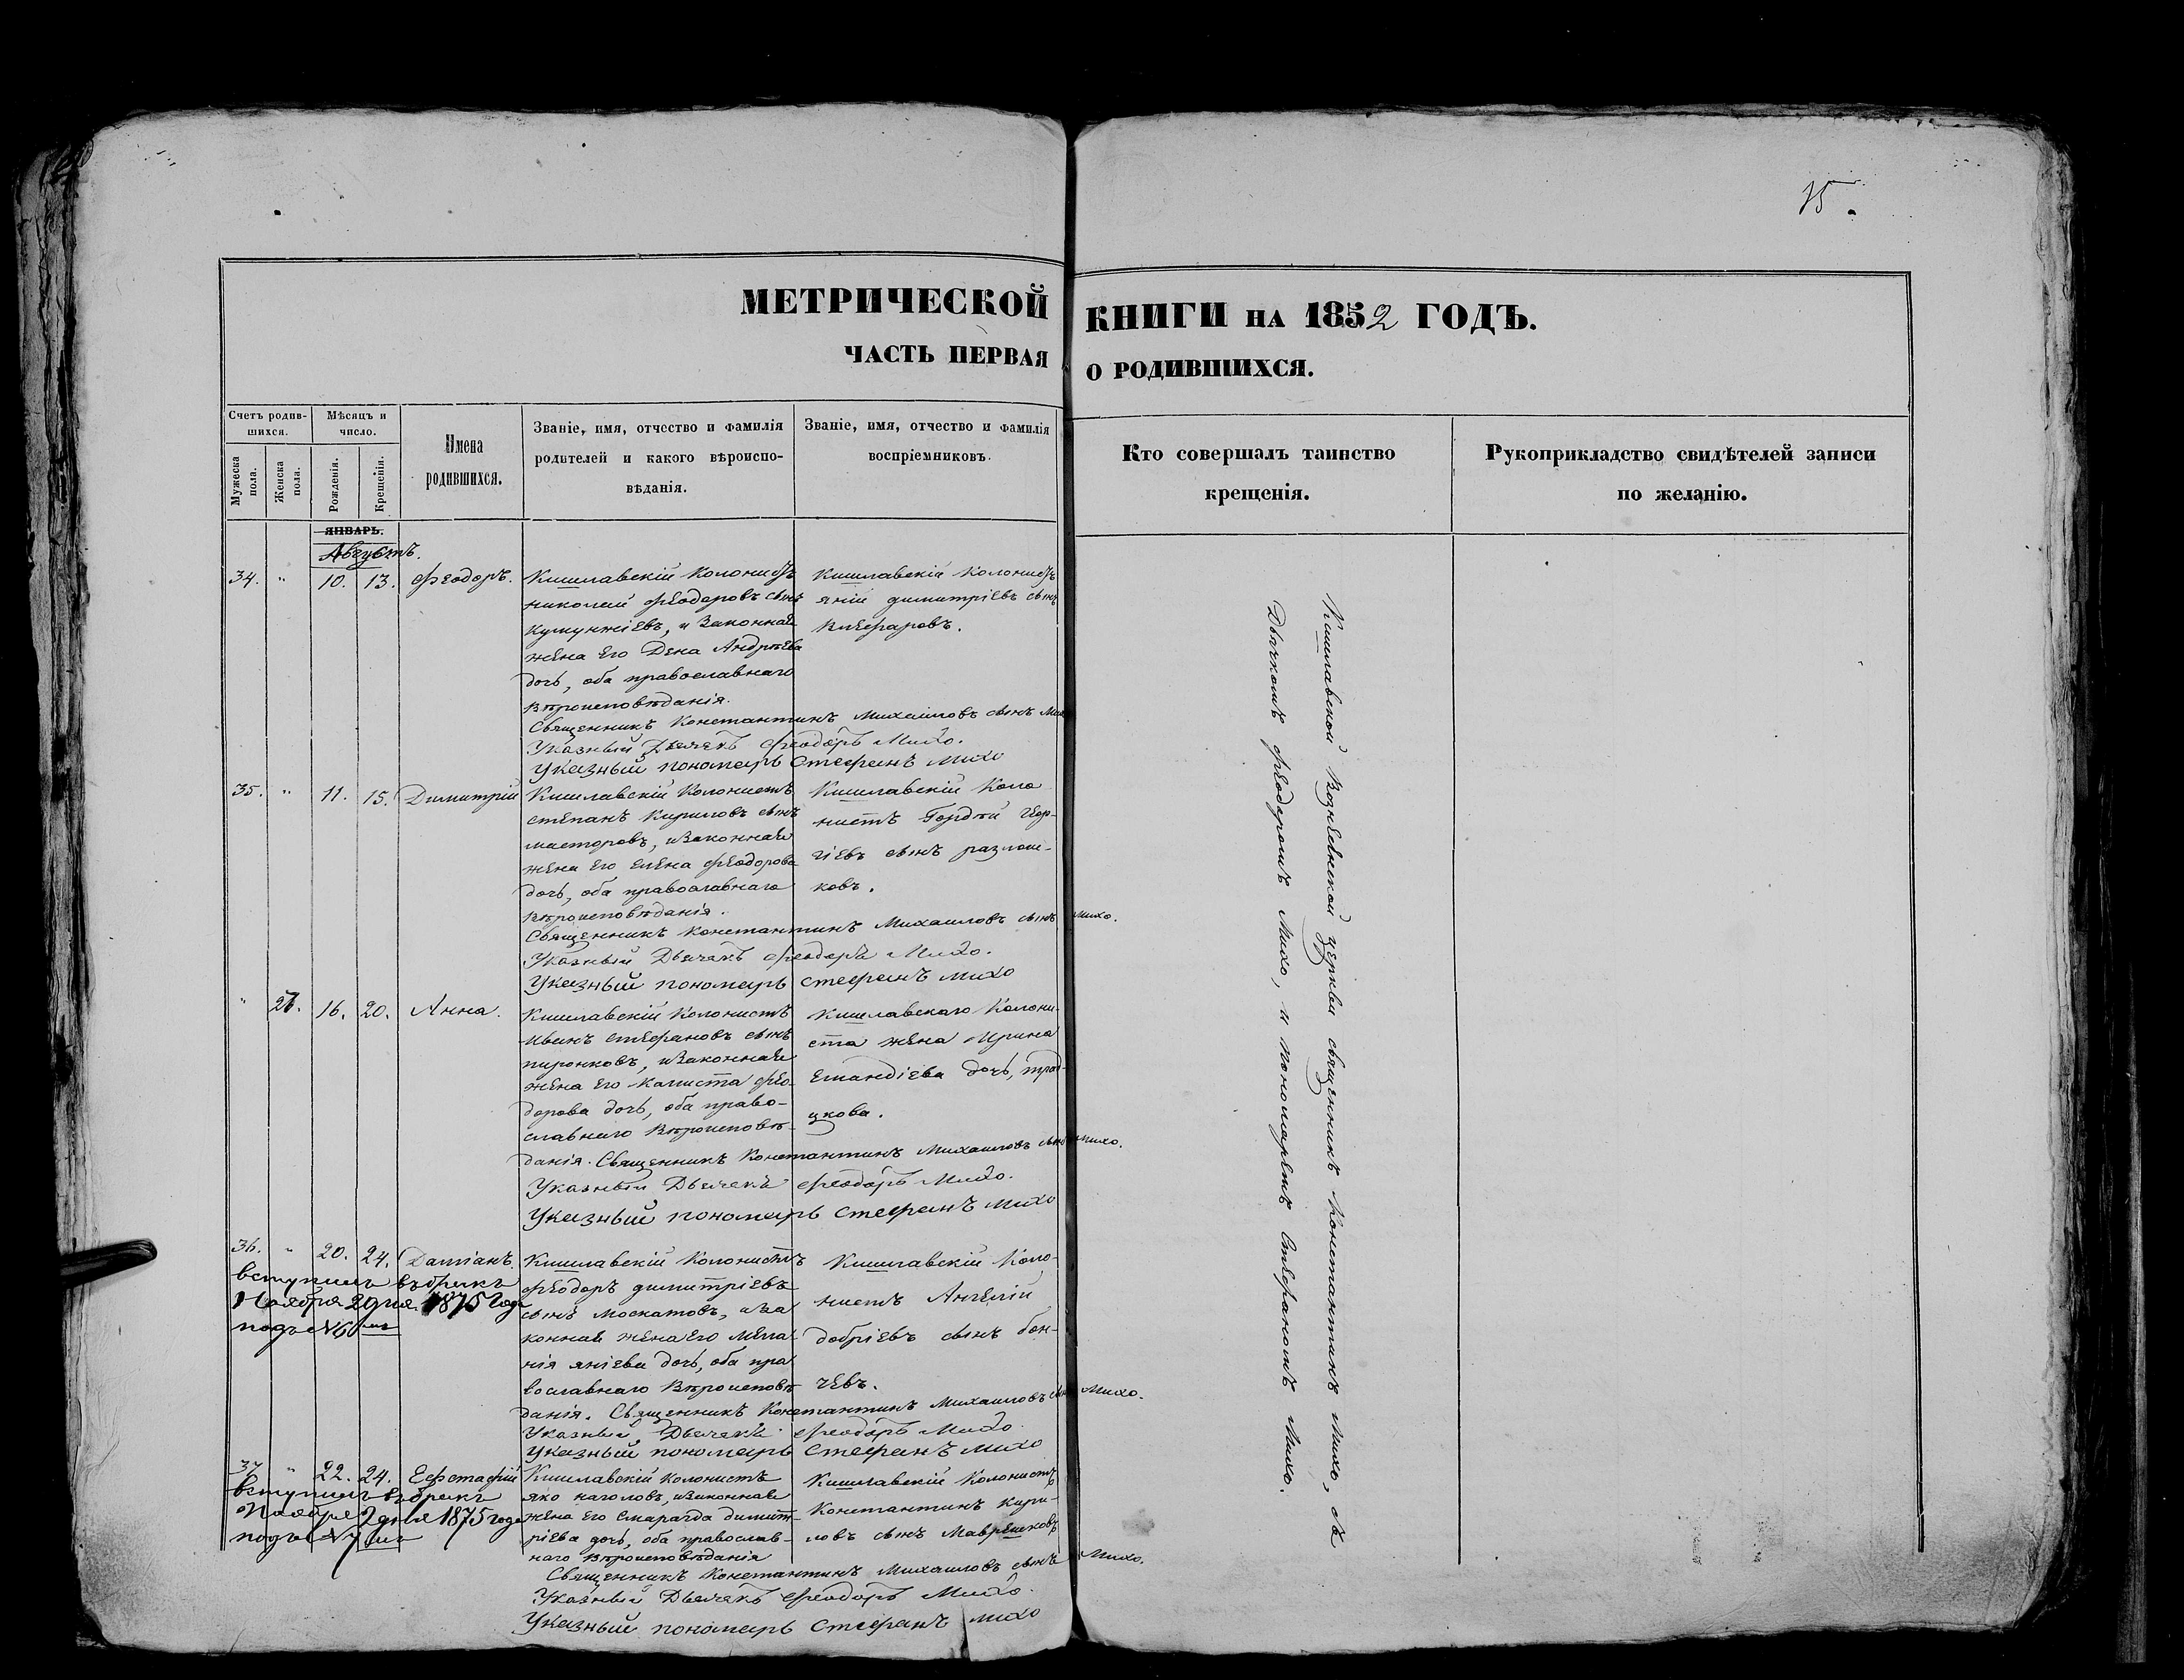 15.
МЕТРИЧЕСКОЙ КНИГИ НА 1852 ГОДЪ.
ЧАСТЬ ПЕРВАЯ О РОДИВШИХСЯ.
Счетъ родив-
шихся.
Мужеска пола.
Женска пола.
Мѣсяцъ и
число.
Рожденія.
Крещенія.
Имена
родившихся.
Званіе, имя, отчество и фамилія
родителей и какого вѣроиспо-
вѣданія.
Званіе, имя, отчество и фамилія
воспріемниковъ.
Кто совершалъ таинство
крещенія.
Рукоприкладство свидѣтелей записи
по желанію.
ЯНВАРЬ.
Августъ.
34. " 10. 13. Феодоръ.
Кишлавскій Колонистъ
николай Феодоровъ сынъ
Куюунжіевъ, и Законная
жена Его Дена Андрѣева
дочь, оба православнаго
Вѣроисповѣданія.
Кишлавскій Колонистъ
яній димитріевъ сынъ
Священникъ Константинъ Михаиловъ сынъ Михо
Указный Дьячекъ Феодоръ Михо.
Указный пономарь Стефанъ Михо
35. " 11. 15. Димитрій
Кишлавскій Колонистъ
степанъ Кириловъ сынъ
масторовъ, иЗаконная
жена Его елена Феодорова
дочь, оба православнаго
Вѣроисповѣданія.
Кишлавскій Коло
нистъ Гордѣй Геор-
гіевъ сынъ разлош-
ковъ.
Священникъ Константинъ Михаиловъ сынъ Михо.
Указный Дьячекъ Феодоръ Михо.
Указный пономарь Стефанъ Михо
" 16. 20. Анна.
Кишлавскій Колонистъ
Иванъ стефановъ сынъ
пиронковъ, иЗаконная
жена Его Калиста Фео-
дорова дочь, оба право-
славнаго Вѣроисповѣ-
данія.
Кишлавскаго Колони-
ста жена Ирина
дочь, трай-
цкова.
Священникъ Константинъ Михаиловъ сынъ Михо.
Указный Дьячекъ Феодоръ Михо.
Указный пономарь Стефанъ Михо
36. " 20. 24. Даміанъ.
вступилъ въ бракъ
Ноября 2 дня 1875 года
подъ №6мъ
Кишлавскій Колонистъ
Феодоръ димитріевъ
сынъ Москатовъ, иЗа
конная жена Его Мела
нія яніева дочь, оба пра
вославнаго Вѣроисповѣ
данія.
Кишлавскій Коло-
нистъ Ангелій
добріевъ сынъ бон-
чевъ.
Священникъ Константинъ Михаиловъ сынъ Михо.
Указный Дьячекъ Феодоръ Михо
Указный пономарь Стефанъ Михо
37 " 22. 24. Ефстафій
вступилъ въ бракъ
Ноября 2 дня 1875 года
подъ №7мъ
Кишлавскій колонистъ
яко наголовъ, иЗаконная
жена Его Смарагда димит-
ріева дочь, оба православ-
наго Вѣроисповѣданія
Кишлавскій Колонистъ
Константинъ Кири-
ловъ сынъ Маврешковъ
Священникъ Константинъ Михаиловъ сынъ Михо.
Указный Дьячекъ Феодоръ Михо.
Указный пономарь Стефанъ Михо
Кишлавской Вознесенской церкви священникъ Константинъ Михо, съ
Дьячкомъ Феодоромъ Михо, и пономаремъ Стефаномъ Михо.